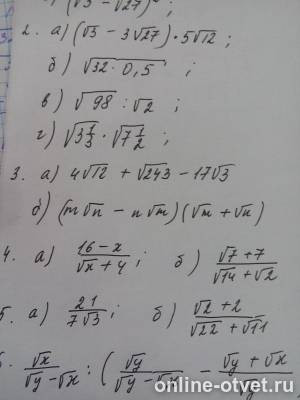 (√3 - √27)²;
2. а) (√3 - 3√27) · 5√12;
б) √32 · 0,5 ;
в) √98 : √2 ;
г) √3 1/3 · √7 1/2 ;
3. а) 4√12 + √243 - 17√3
б) (m√n - n√m)(√m + √n)
4. а) (16-x)/(√x + 4); б) (√7 + 7)/(√14 + √2)
5. а) 21/(7√3); б) (√2 + 2)/(√22 + √11)
√x/(√y - √x) : (√y/(√y - √x) - (√y + √x)/√y
online-otvet.ru